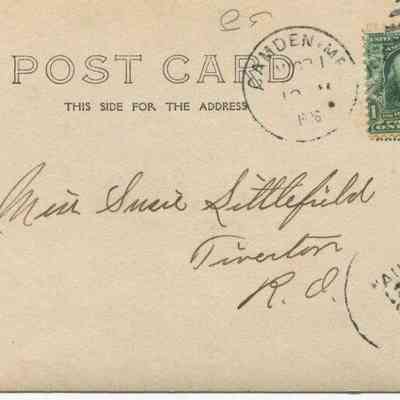 POST CARD
THIS SIDE FOR THE ADDRESS
CAMDEN ME
1
Miss Susie Littlefield
Tiverton
R. I.